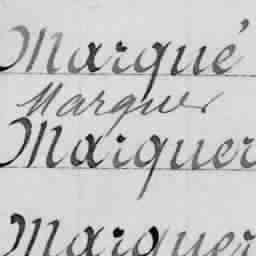 Marqué
Marquer
Marquer
Marquer